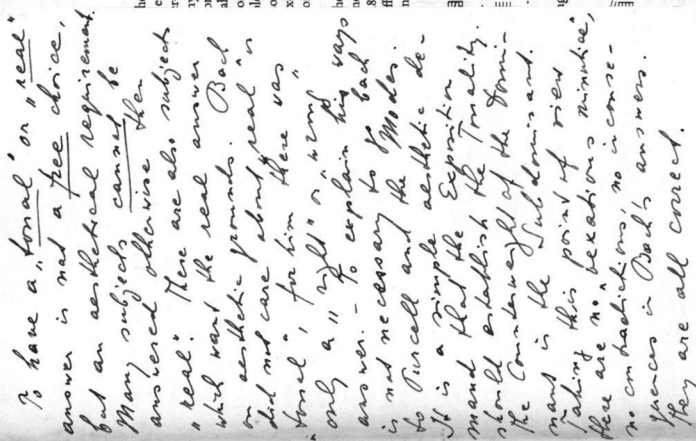 To have a „tonal" or „real"
answer is not a free choice,
but an aesthetical requirement.
Many subjects cannot be
answered otherwise then
„real". There are also subjects
which want the real answer
on aesthetic grounds. Bach
did not care about „real" or
„tonal", for him there was
only a „right" or „wrong"
answer. – To explain his ways
is not necessary to go back
to Purcell and the Modes.
It is a simple aesthetic de-
mand that the Exposition
should establish the Tonality.
The Counterweight of the Domi-
nant is the Subdominant.
Taking this point of view
there are no „vexatious minutiae",
no contradictions, no inconse-
quences in Bach's answers.
They are all correct.